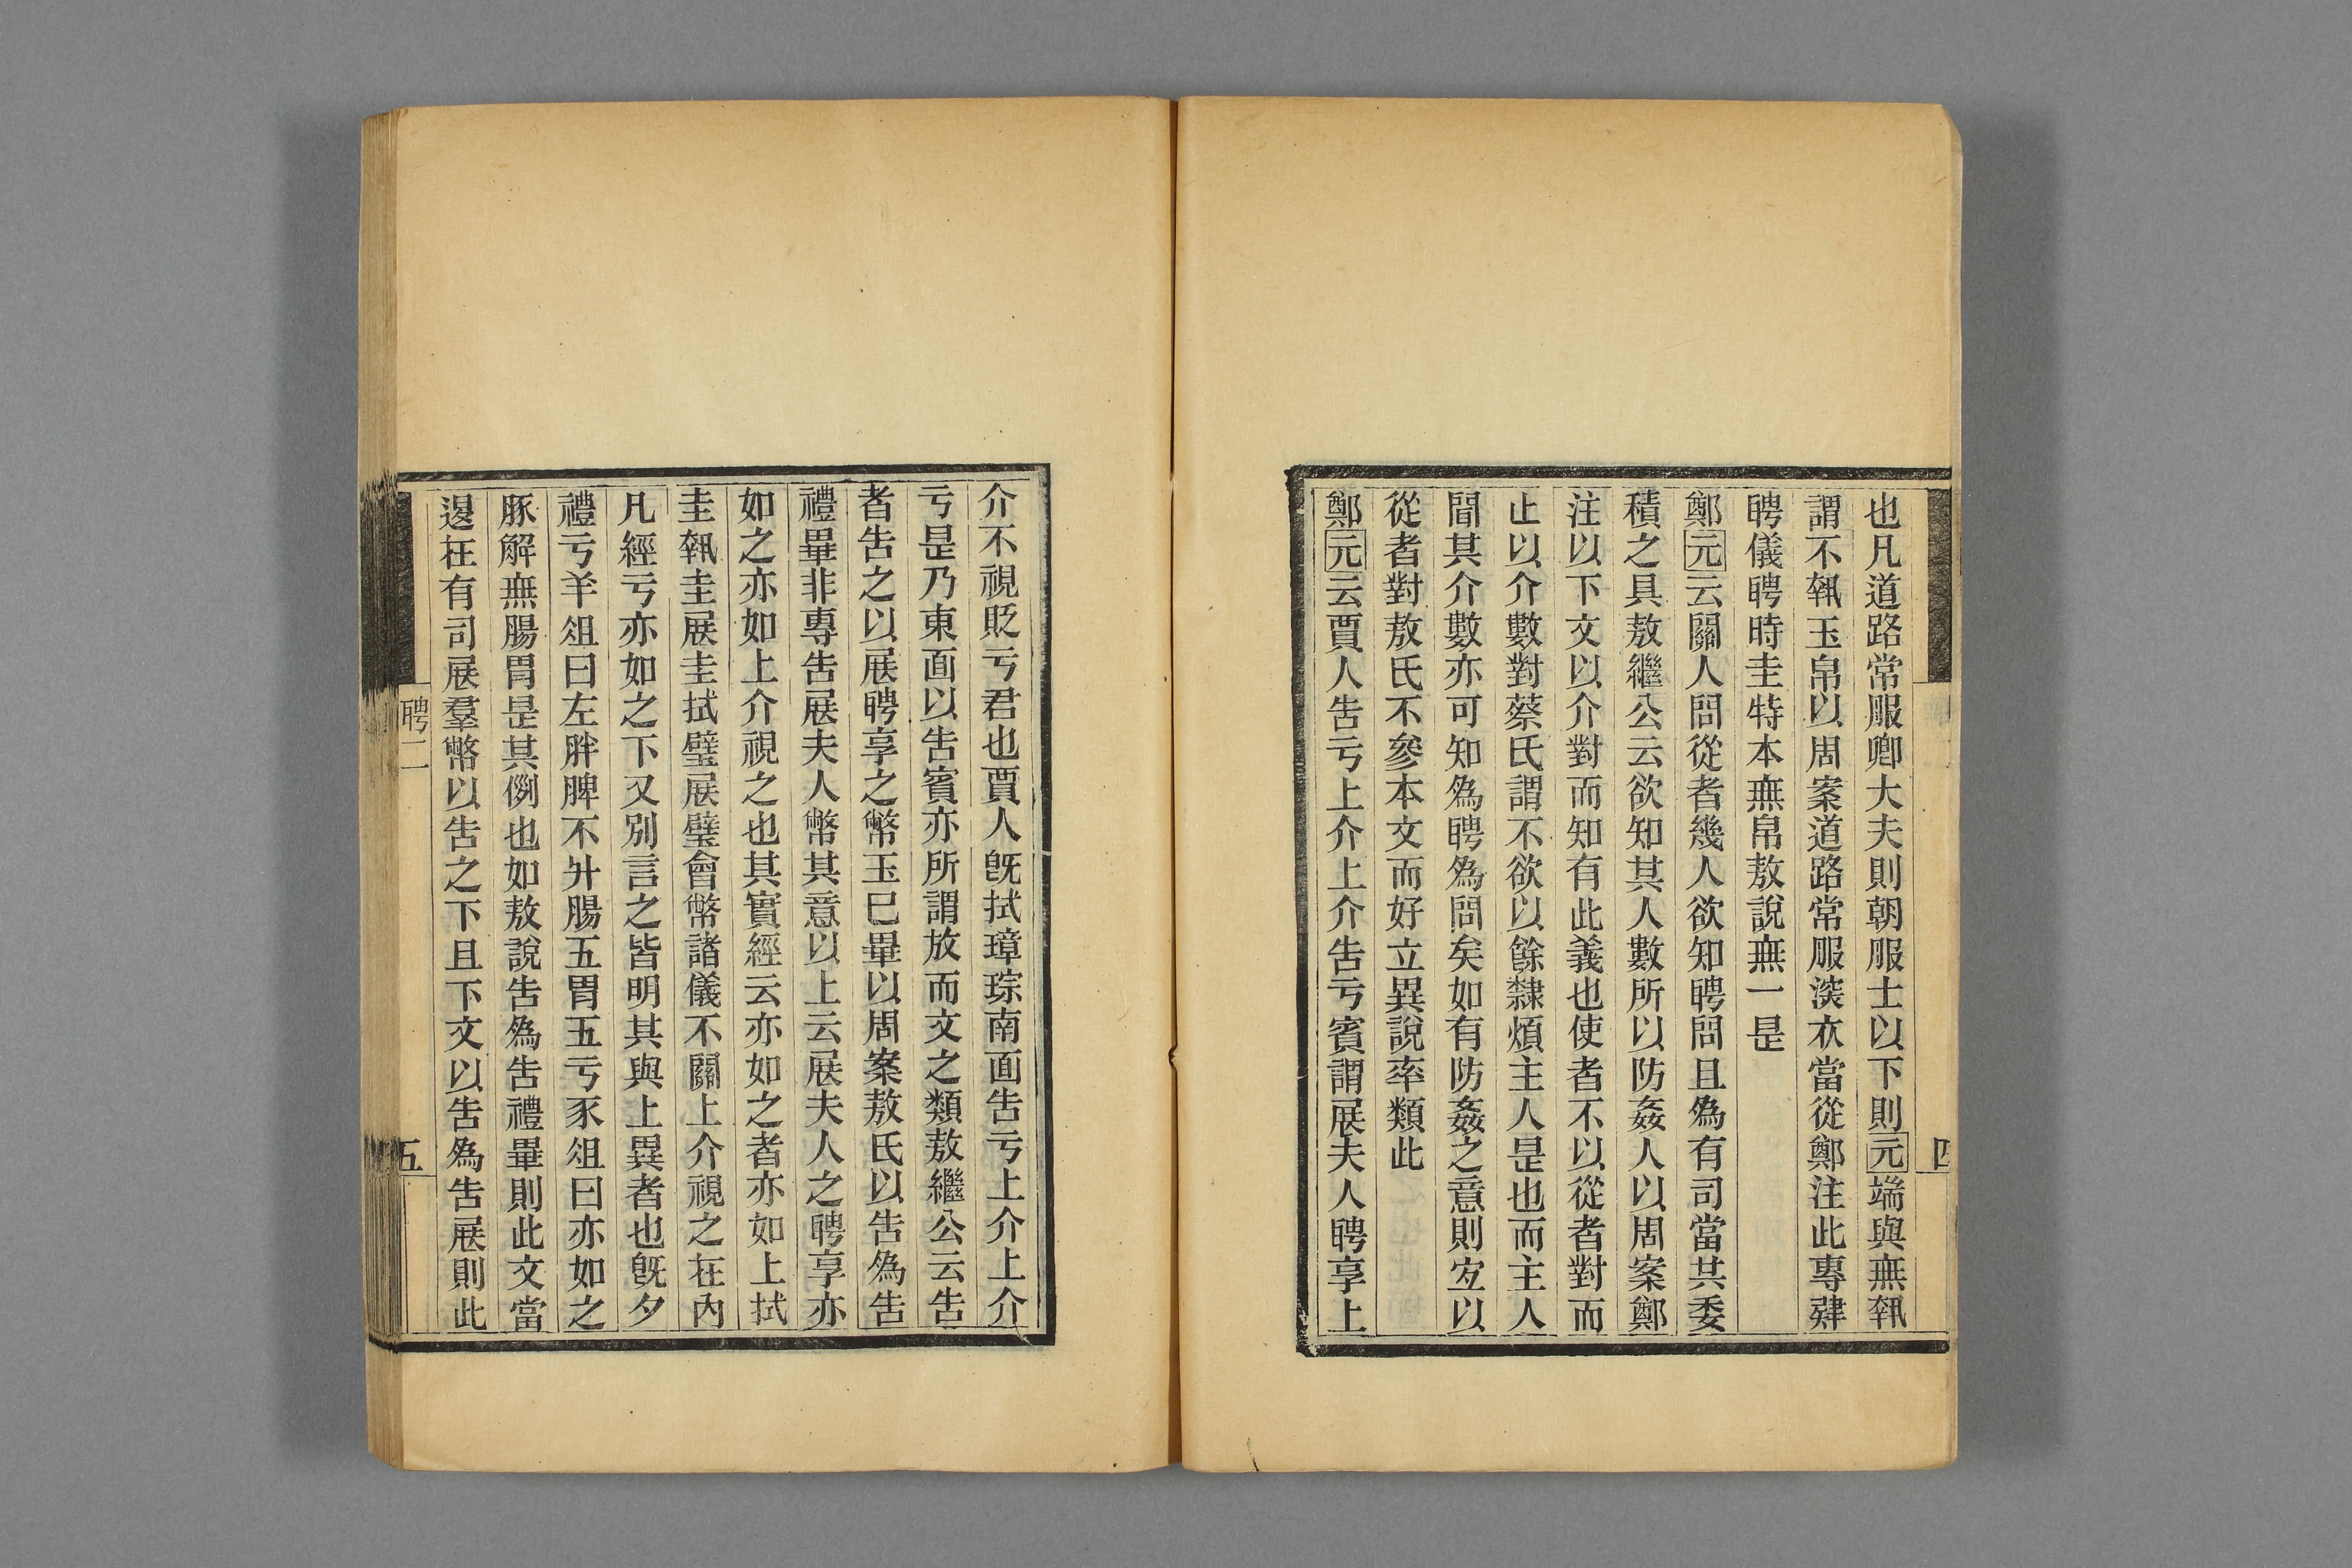 也凡道路常服卿大夫則朝服士以下則元端與無執
謂不執玉帛以周案道路常服深衣當從鄭注此專肄
聘儀聘時圭特本無帛敖說無一是
鄭元云關人問從者幾人欲知聘問且為有司當共委
積之具敖繼公云欲知其人數所以防姦人以周案鄭
注以下文以介對而知有此義也使者不以從者對而
止以介數對蔡氏謂不欲以餘隸煩主人是也而主人
間其介數亦可知為聘為問矣如有防姦之意則宐以
從者對敖氏不參本文而好立異說率類此
鄭元云賈人告亏上介上介告亏賓謂展夫人聘享上
四
介不視貶亏君也賈人旣拭璋琮南面告亏上介上介
亏是乃東面以告賓亦所謂放而文之類敖繼公云告
者告之以展聘享之幣玉巳畢以周案敖氏以告為告
禮畢非專告展夫人幣其意以上云展夫人之聘享亦
如之亦如上介視之也其實經云亦如之者亦如上拭
圭執圭展圭拭璧展璧會幣諸儀不關上介視之在內
凡經亏亦如之下又別言之皆明其與上異者也旣夕
禮亏羊俎曰左胖脾不升腸五胃五亏豕俎曰亦如之
豚解無腸胃是其例也如敖說告為告禮畢則此文當
退在有司展羣幣以告之下且下文以告為告展則此
聘二
五